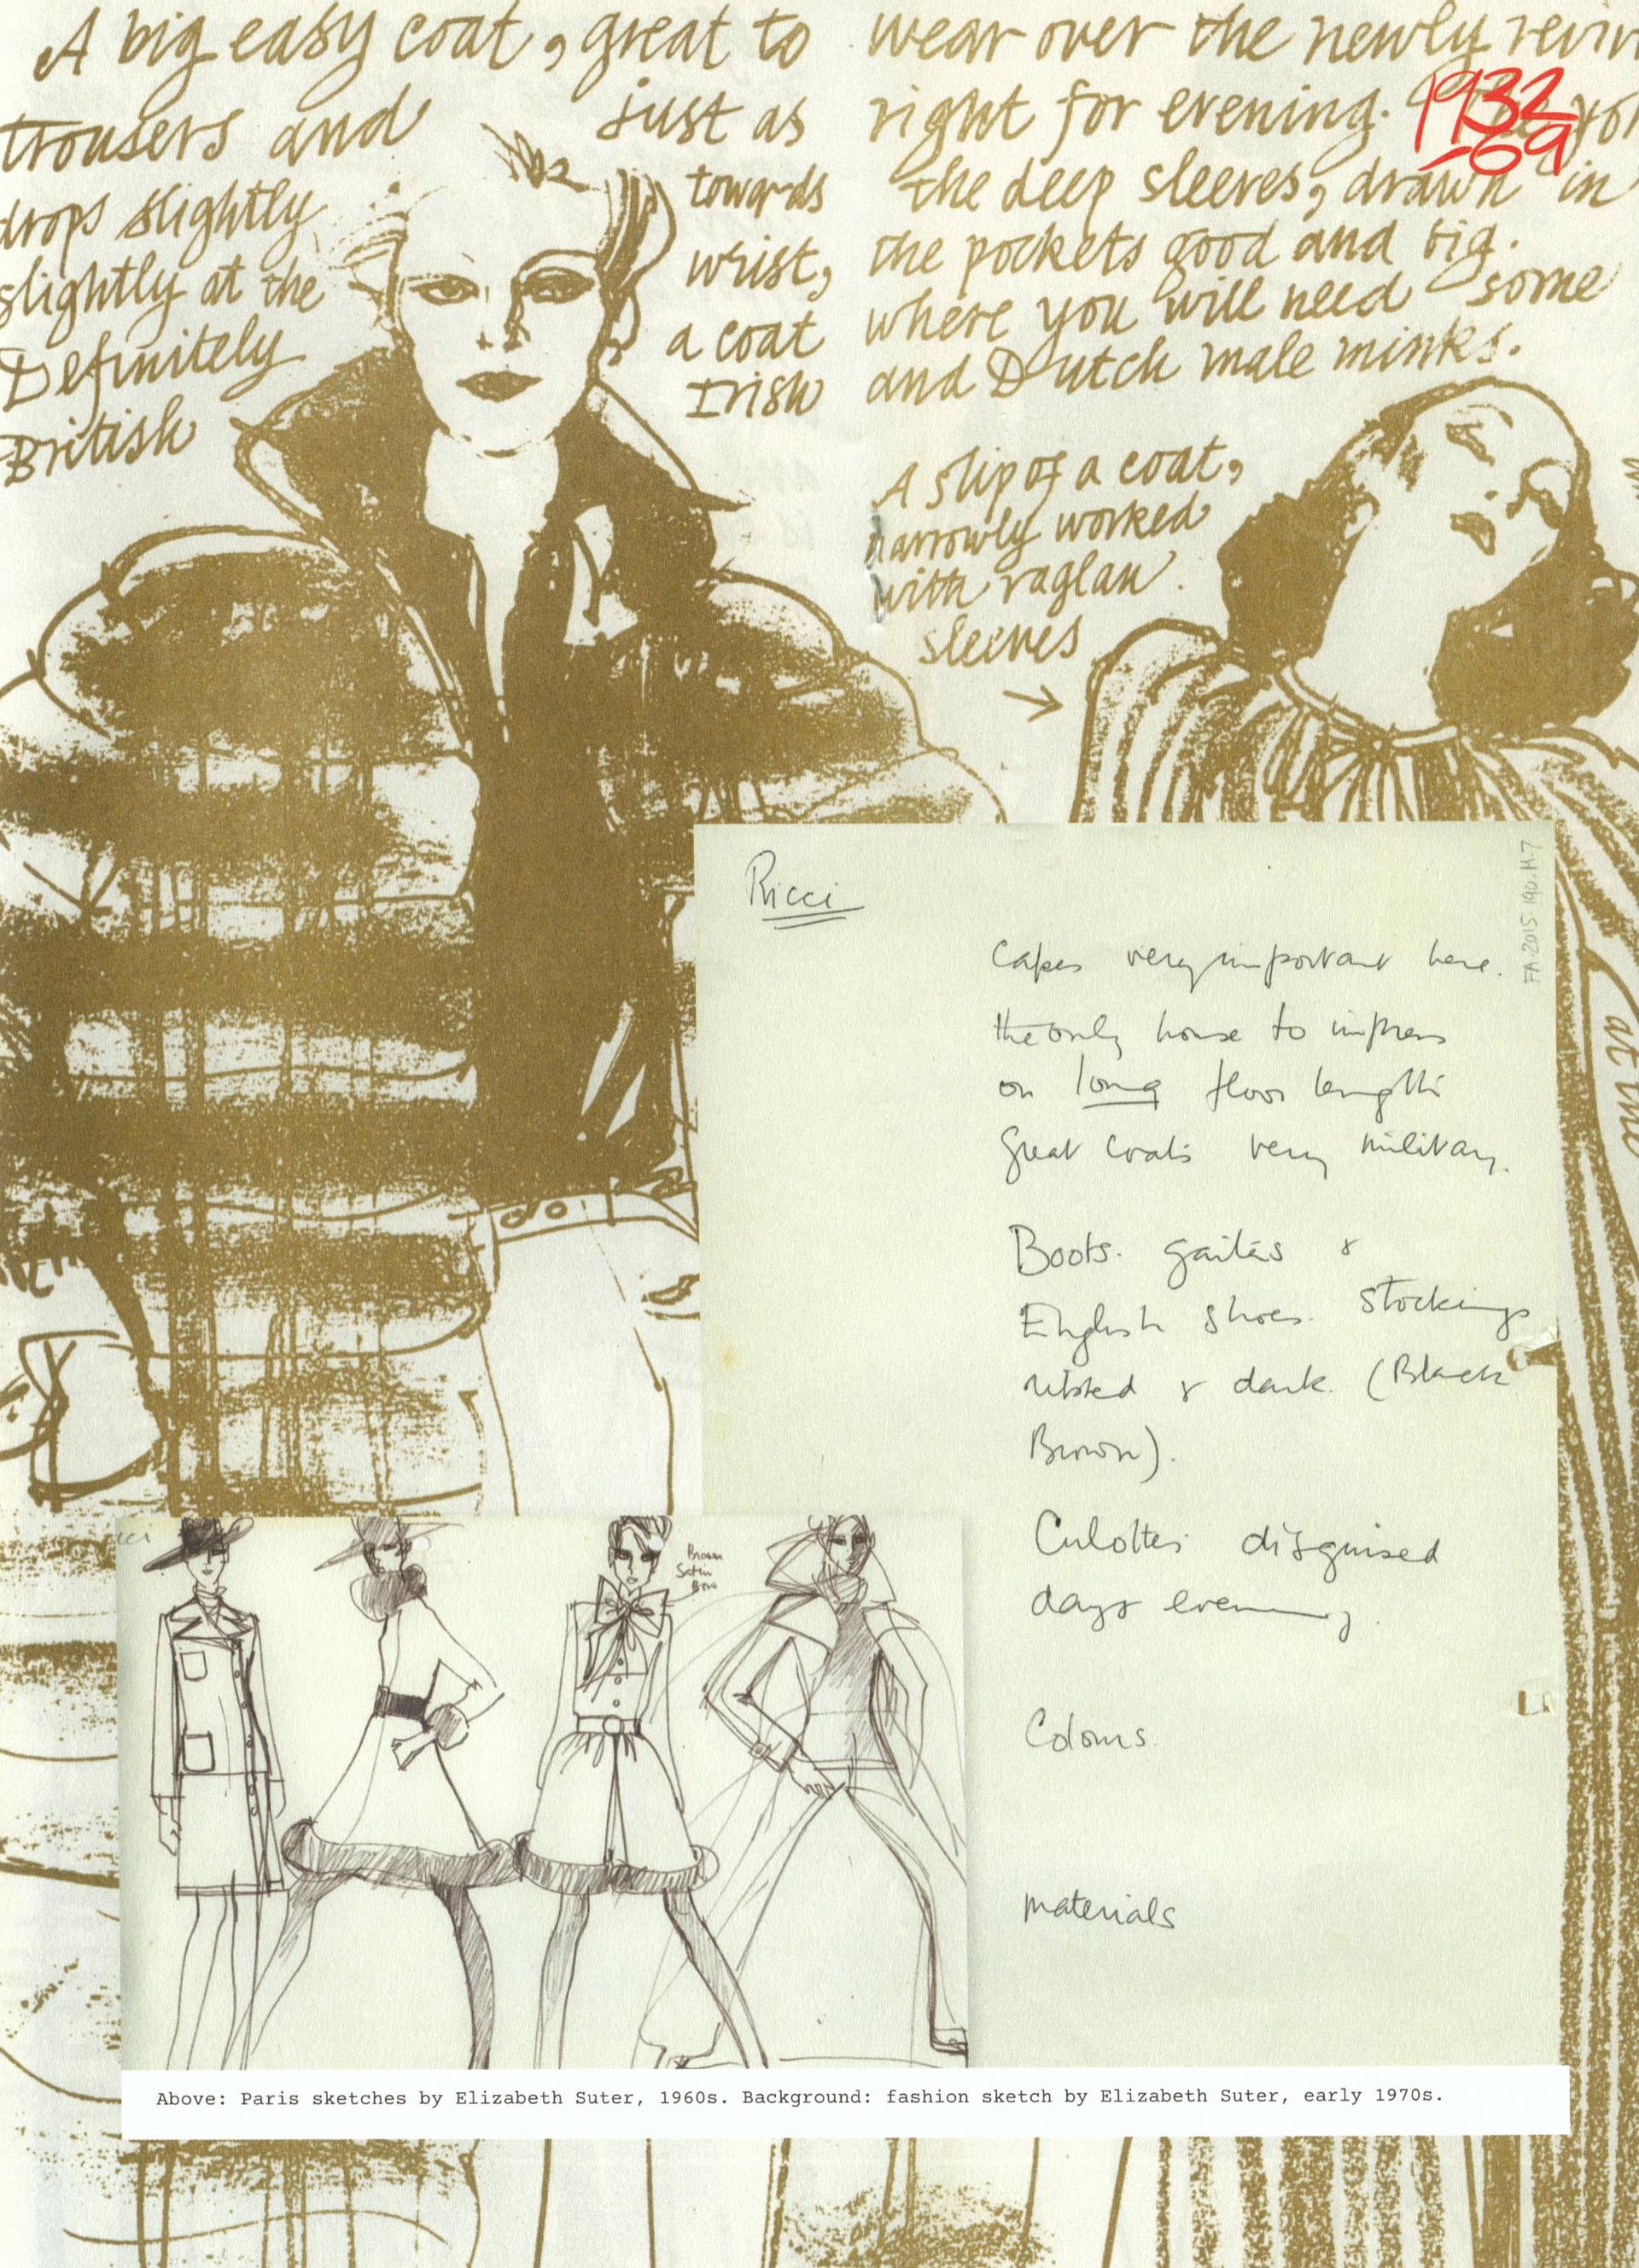 A big easy coat, great to wear over the newly
trousers and just as right for evening.
drops slightly towards the deep sleeves, drawn in
slightly at the wrist, the pockets good and big.
Definitely a coat where you will need some
British Irish and Dutch male minks.
1932
-69
A slip of a coat,
narrowly worked
with raglan
sleeves
at the
Ricci
FA.2015.190.M.7
Capes very important here.
the only house to impress
on long floor length
Great Coats very military.
Boots. gaiters &
English shoes. Stockings
ribbed & dark. (Black
Brown).
Culottes disguised
day & evening.
Colours.
materials
Brown
Satin
Bow
Above: Paris sketches by Elizabeth Suter, 1960s. Background: fashion sketch by Elizabeth Suter, early 1970s.